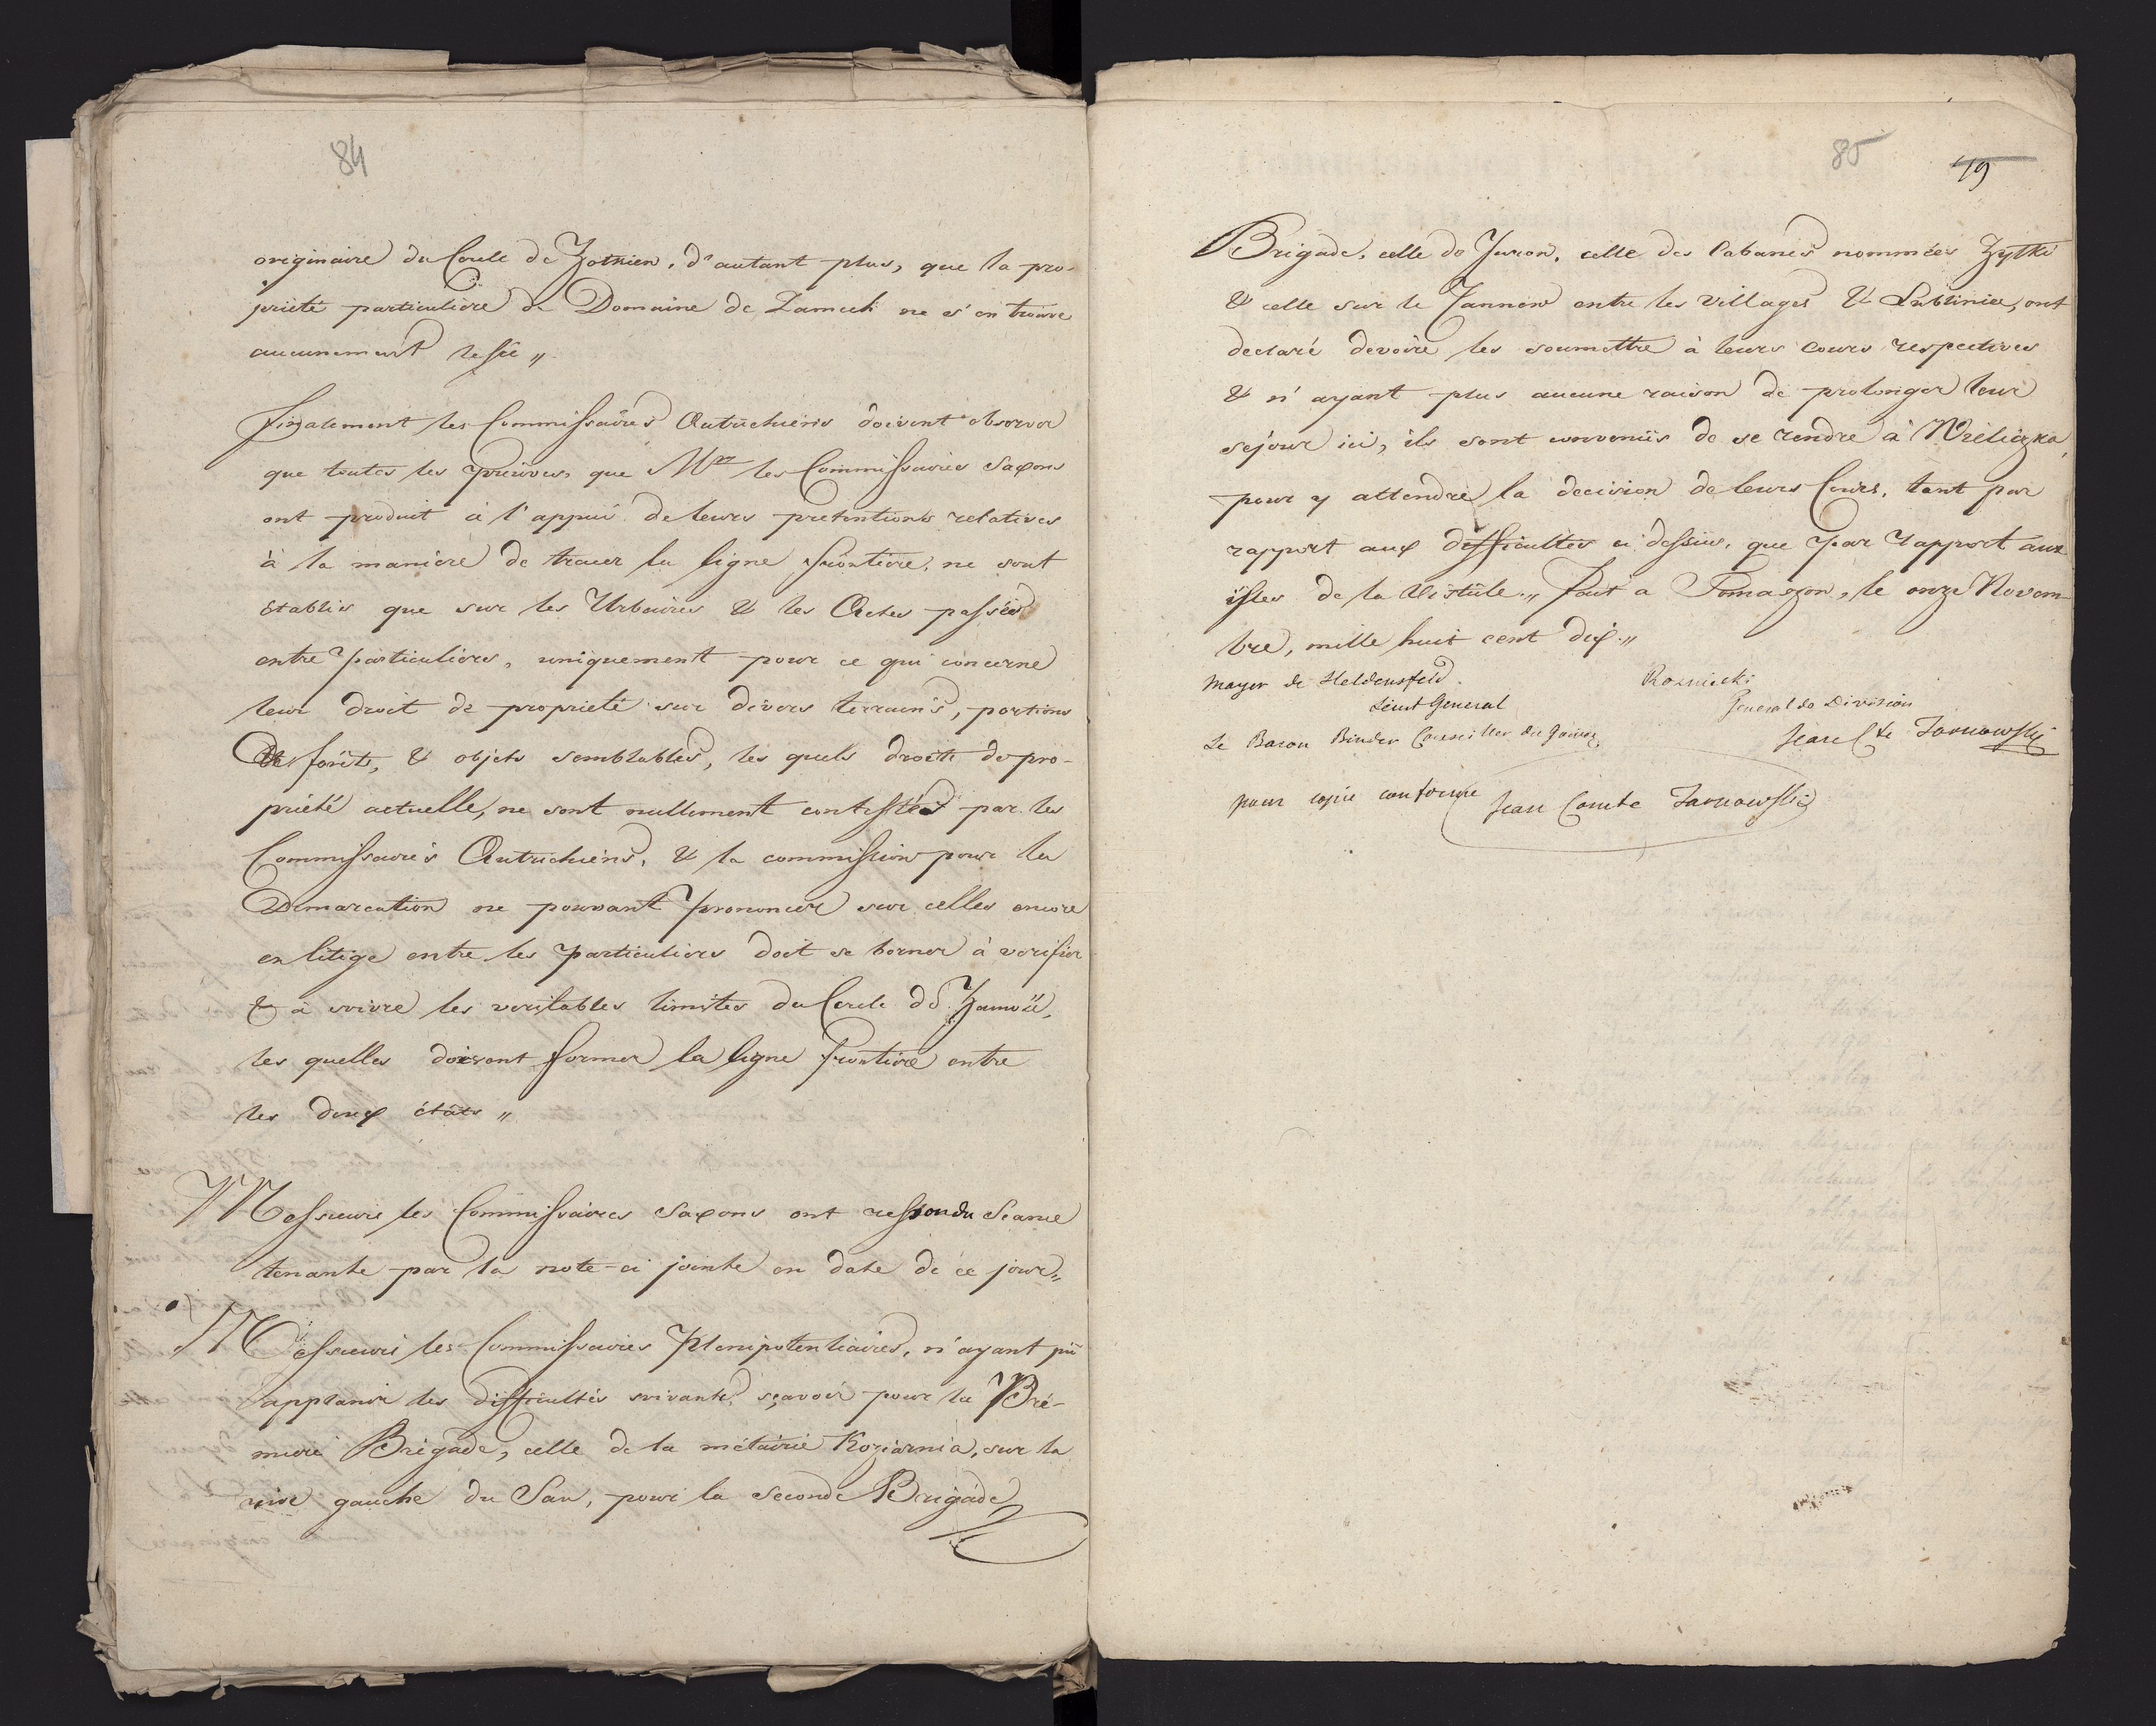 84
originaire du Cercle de Zolkien, d'autant plus, que la pro-
prieté particuliere de Domaine de Zamech ne s'en trouve
aucunement lesée„
Finalement les Commissaires Autrichiens doivent observer
que toutes les preuves, que Mrs les Commissaires Saxons
ont produit à l'appui de leurs pretentions relatives
à la maniere de tracer la ligne frontiere, ne sont
etablis que sur les Urbaires & les Actes passées
entre particuliers, uniquement pour ce qui concerne
leur droit de proprieté sur divers terrains, portions
de forêts, & objets semblables, les quels droits de pro-
prieté actuelle, ne sont nullement contestés par les
Commissaires Autrichiens, & la commission pour la
Demarcation ne pouvant prononcer sur celles encore
en litige entre les particuliers doit se borner à verifier
& à suivre les veritables limites du Cercle de
les quelles doivent former la ligne frontiere entre
les deux états„
Messieurs les Commissaires Saxons ont respondu Seance
tenante par la note ci jointe en date de ce jour„
Messieurs les Commissaires Plenipotentiaires, n'ayant pû
applanir les difficultés suivantes, sçavoir pour la Pré-
miere Brigade, celle de la métairie Koziarnia, sur la
rive gauche du San, pour la seconde Brigade
85
49
Brigade, celle de celle des Cabanes nommées Zytki
& celle sur le Tannew entre les villages & Lubliniec, ont
declaré devoire les soumettre à leurs Cours respectives
& n'ayant plus aucune raison de prolonger leur
sejour ici, ils sont convenûs de se rendre à Wieliczka,
pour y attendre la decision de leurs Cours, tant par
rapport aux difficultés ci dessus, que par rapport aux
isles de la Vistûle„ Fait a Tomaszow, le onze Novem-
bre, mille huit cent dix„
Mayer de Heldensfeld
Lieut General
Rozniecki
General de Division
Le Baron Binder Conseiller du Gouver.
Jean Cte Tarnowski
pour copie conforme Jean Comte Tarnowski